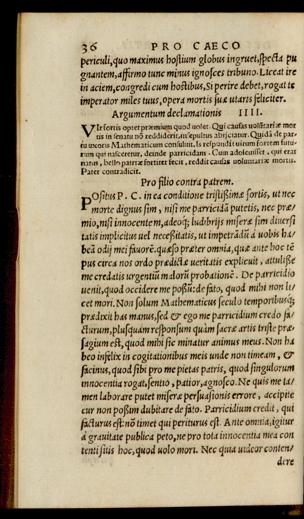 36 PRO CAECO
periculi, quo maximus hostium globus ingruet, specta pu
gnantem, affirmo tunc minus ignosces tribuno. Liceat ire
in aciem, congredi cum hostibus. Si perire debet, rogat te
imperator miles tuus, opera mortis suæ utaris feliciter.
Argumentum declamationis IIII.
VIr fortis optet præmium quod uolet. Qui causas uolūtariæ mor
tis in senatu nō reddiderit, insepultus abijciatur. Quidā de par-
tu uxoris Mathematicum consuluit. Is respōdit uirum fortem futu-
rum qui nasceretur, deinde parricidam. Cum adoleuisset, qui erat
natus, bello patriæ fortiter fecit, reddit causas uoluntariæ mortis.
Pater contradicit.
Pro filio contra patrem.
POsitus P. C. in ea conditione tristissimæ sortis, ut nec
morte dignus sim, nisi me parricidā putetis, nec præ-
mio, nisi innocentem, adeoq; ludibrijs miseræ sim diuersi
tatis implicitus uel necessitatis, ut impetrādū à uobis ha-
beā odij mei fauorē. quæso prater omnia, quæ ante hoc tē
pus circa nos ordo prædictæ ueritatis explicuit, attulisse
me credatis urgentiū malorū probationē. De parricidio
uenit, quod occidere me possū: de fato, quod mihi non li-
cet mori. Non solum Mathematicus seculo temporibusq;
prædixit has manus, sed & ego me parricidium credo fa-
cturum, plusquam responsum quàm sacræ artis triste præ-
sagium est, quod mihi sic minatur animus meus. Non ha
beo infelix in cogitationibus meis unde non timeam, &
facinus, quod sibi pro me pietas patris, quod singulorum
innocentia rogat, sentio, patior, agnosco. Ne quis me ta-
men laborare putet miseræ persuasionis errore, accipite
cur non possim dubitare de fato. Parricidium credit, qui
facturus est: nō timet qui periturus est. Ante omnia, igitur
à grauitate publica peto, ne pro tota innocentia mea con
tenti sitis hoc, quod uolo mori. Nec quia utācor conten-
dere